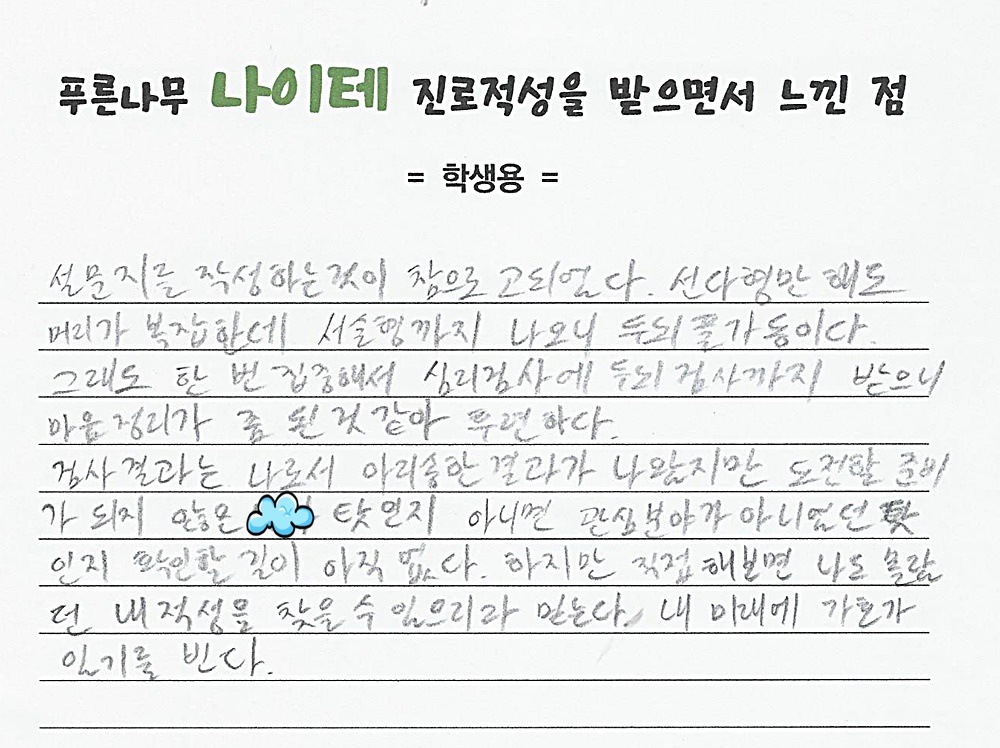 푸른나무 나이테 진로적성을 받으면서 느낀 점
= 학생용 =
설문지를 작성하는것이 참으로 고되었다. 선다형만 해도
머리가 복잡한데 서술형까지 나오니 두뇌풀가동이다.
그래도 한 번 집중해서 심리검사에 두뇌검사까지 받으니
마음정리가 좀 된 것 같아 후련하다.
검사결과는 나로서 아리송한 결과가 나왔지만 도전할 준비
가 되지 않은 탓인지 아니면 관심분야가 아니었던 탓
인지 확인할 길이 아직 없다. 하지만 직접 해보면 나도 몰랐
던 내적성을 찾을 수 있으리라 믿는다. 내 미래에 가호가
있기를 빈다.